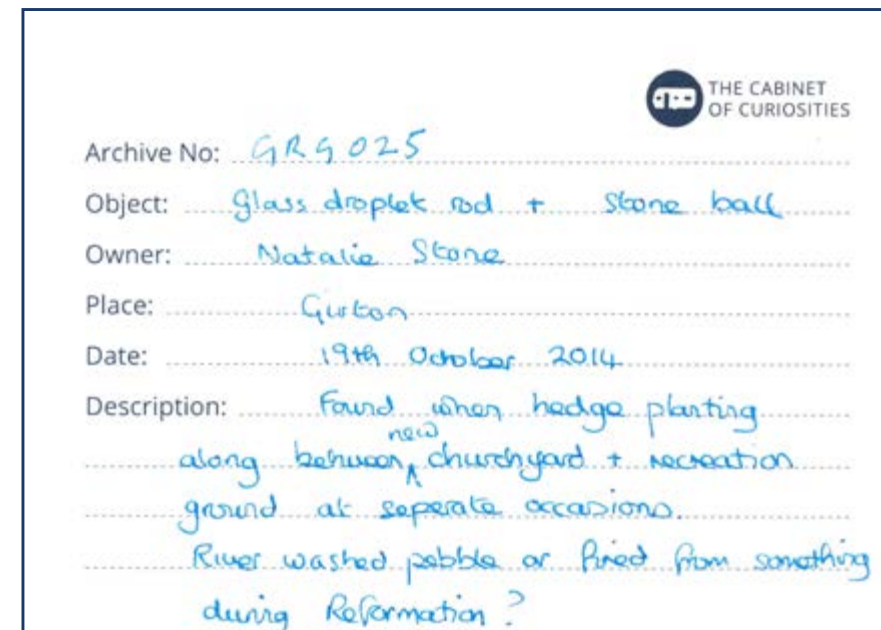 THE CABINET
OF CURIOSITIES
Archive No: GRG025
Object: Glass droplet rod + Stone ball
Owner: Natalie Stone
Place: Girton
Date: 19th October 2014
Description: Found when hedge planting
along between new churchyard + recreation
ground at seperate occasions.
River washed pebble or fired from something
during Reformation?